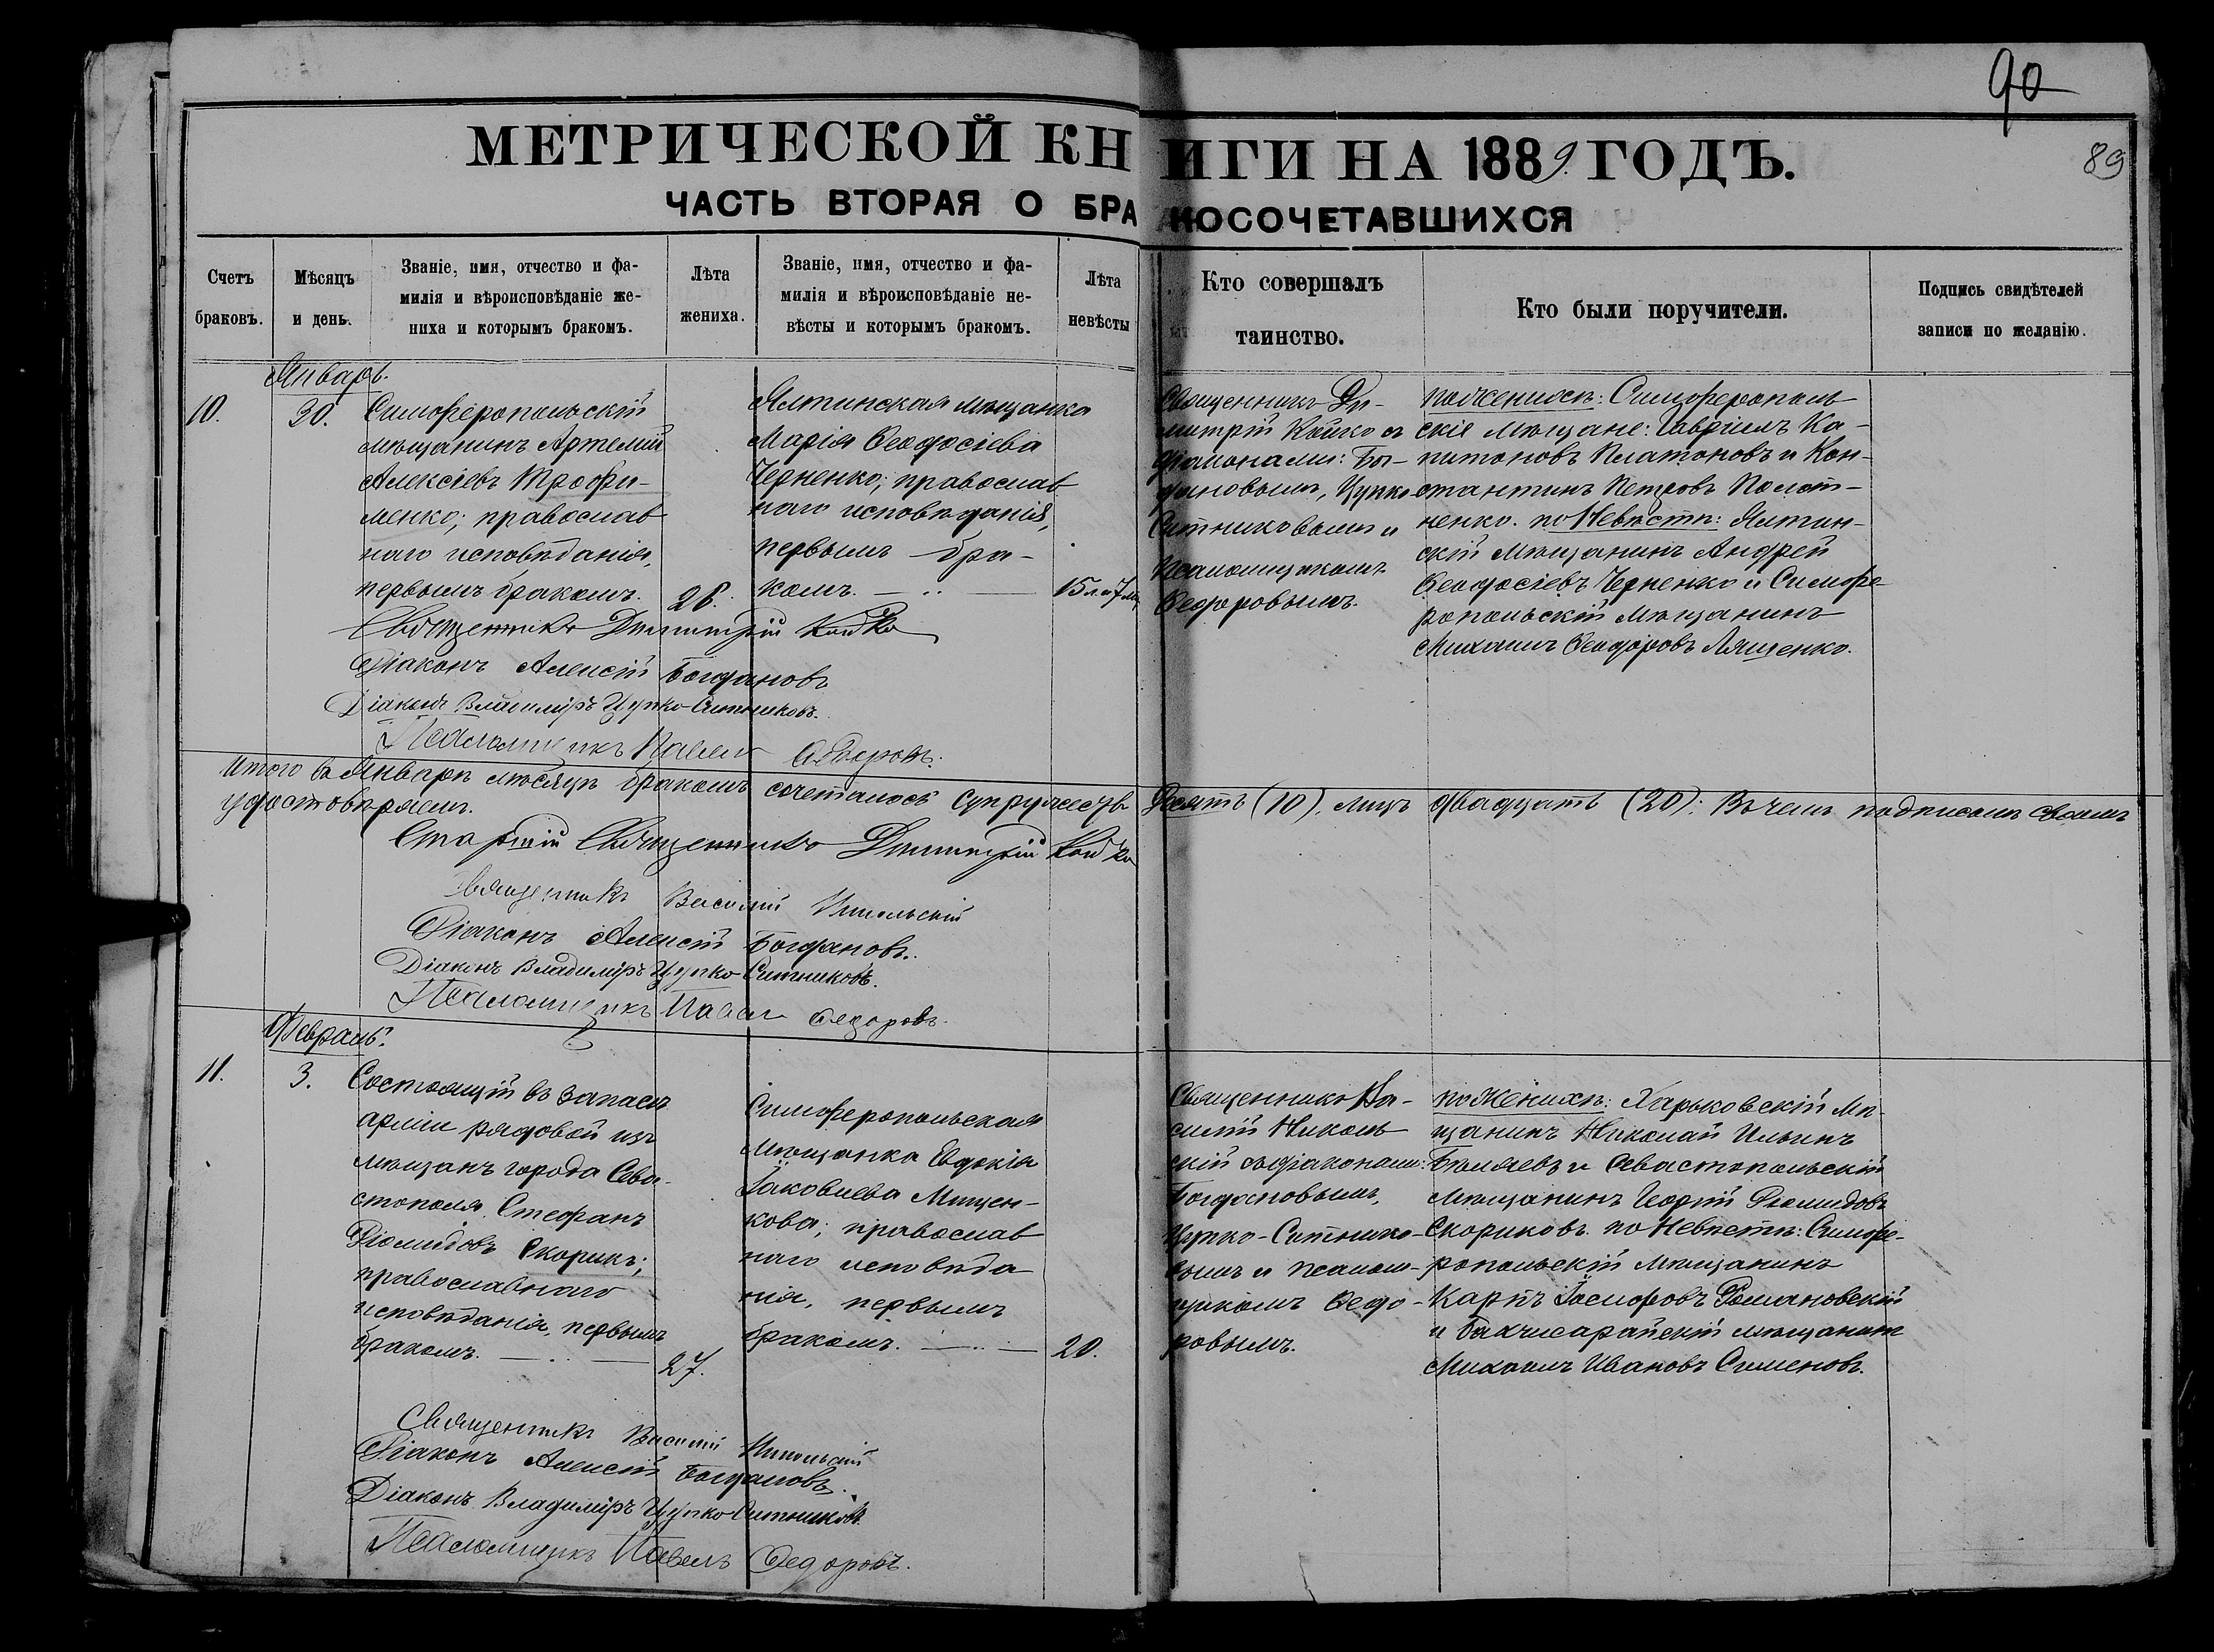 90
89
МЕТРИЧЕСКОЙ КНИГИ НА 1889 ГОДЪ.
ЧАСТЬ ВТОРАЯ О БРАКОСОЧЕТАВШИХСЯ
Счетъ
браковъ.
Мѣсяцъ
и день.
Званіе, имя, отчество и фа-
милія и вѣроисповѣданіе же-
ниха и которымъ бракомъ.
Лѣта
жениха.
Званіе, имя, отчество и фа-
милія и вѣроисповѣданіе не-
вѣсты и которымъ бракомъ.
Лѣта
невѣсты
Кто совершалъ
таинство.
Кто были поручители.
Подпись свидѣтелей
записи по желанію.
Январь.
10.
30.
Симферопольскій
мѣщанинъ Артемій
Алексіевъ Трофи-
менко; православ
наго исповѣданія,
первымъ бракомъ.
28.
Ялтинская мѣщанка
Марія Ѳеодосіева
Черненко; православ
наго исповѣданія,
первымъ бра-
комъ.
15 л. и 7 м.
Священникъ Ди-
митрій Койко съ
діаконами: Бог-
дановымъ, Цупко-
Ситниковымъ и
Псаломщикомъ
Ѳеодоровымъ.
по женихѣ: Симферополь
скіе мѣщане: Гавріилъ Ка-
питоновъ Платоновъ и Кон-
стантинъ Петровъ Полот-
ненко. по Невѣстѣ: Ялтин-
скій мѣщанинъ Андрей
Ѳеодосіевъ Черненко и Симфе-
ропольскій мѣщанинъ
Михаилъ Ѳеодоровъ Лященко.
Священникъ Димитрій Койко
Діаконъ Алексій Богдановъ
Діаконъ Владиміръ Цупко-Ситниковъ.
Псаломщикъ Павелъ Ѳедоровъ.
Итого въ Январѣ мѣсяцѣ бракомъ сочеталось супружествъ Десять (10), лицъ двадцать (20): Въ чемъ подписомъ своимъ
удостовѣряемъ.
Старшій Священникъ Димитрій Койко
Священникъ Василій Никольскій
Діаконъ Алексій Богдановъ.
Діаконъ Владиміръ Цупко-Ситниковъ.
Псаломщикъ Павелъ Ѳедоровъ.
Февраль.
11.
3.
Состоящій въ запасѣ
арміи рядовой изъ
мѣщанъ города Сева-
стополя Стефанъ
Діомидовъ Скорикъ;
православнаго
исповѣданія, первымъ
бракомъ.
27.
Симферопольская
мѣщанка Евдокія
Іаковлева Мищен-
кова; православ
наго исповѣда
нія, первымъ
бракомъ.
20.
Священникъ Ва-
силій Николь
скій съ діаконами:
Богдановымъ,
Цупко-Ситнико-
вымъ и псалом-
щикомъ Ѳедо-
ровымъ.
по Женихѣ: Харьковскій мѣ-
щанинъ Николай Ильинъ
Бѣляевъ и Севастопольскій
мѣщанинъ Георгій Діомидовъ
Скориковъ. по Невѣстѣ: Симфе-
ропольскій мѣщанинъ
Карпъ Іосифовъ Романовскій
и Бахчисарайскій мѣщанинъ
Михаилъ Ивановъ Сименовъ.
Священникъ Василій Никольскій
Діаконъ Алексій Богдановъ.
Діаконъ Владиміръ Цупко-Ситниковъ.
Псаломщикъ Павелъ Ѳедоровъ.